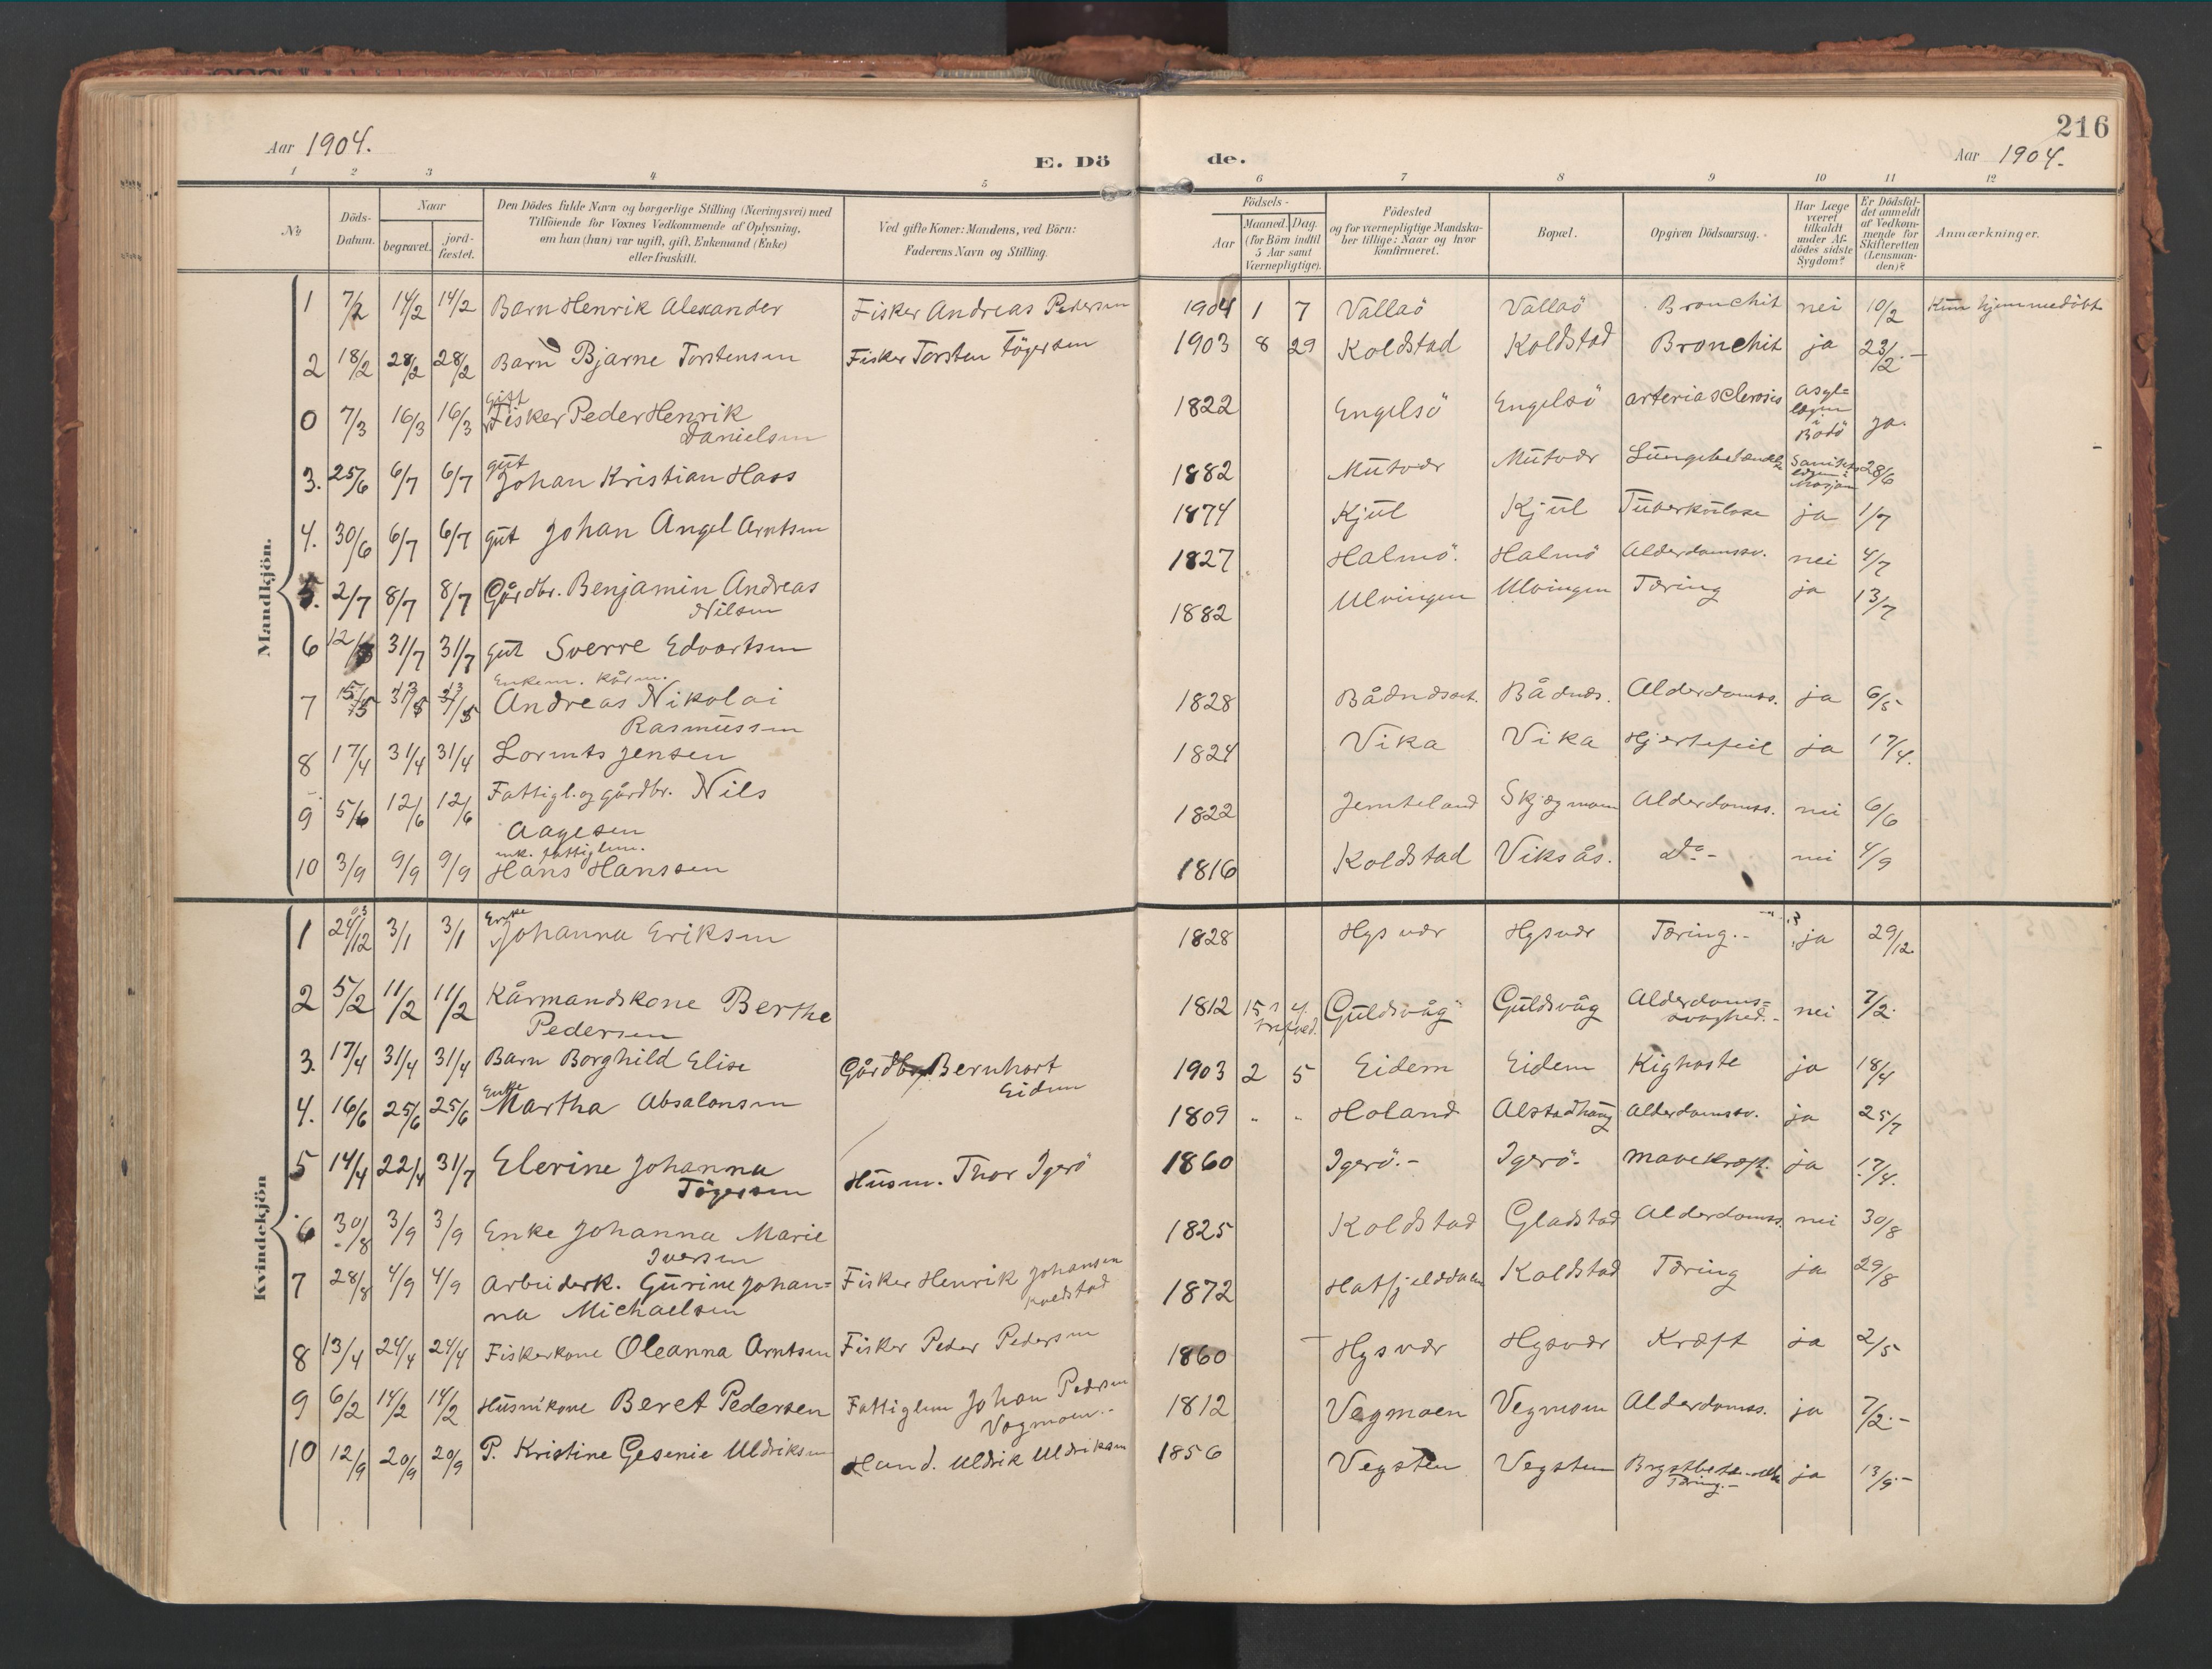 216
Aar 1904.
E. Dö de.
Aar 1904.
1 2 3 4 5 6 7 8 9 10 11 12
No
Döds-
Datum.
Naar
begravet.
jord-
fæstet.
Den Dödes fulde Navn og borgerlige Stilling (Næringsvei) med
Tilföiende for Voxnes Vedkommende af Oplysning,
om han (hun) var ugift, gift, Enkemand (Enke)
eller fraskilt.
Ved gifte Koner: Mandens, ved Börn:
Faderens Navn og Stilling.
Födsels-
Aar
Maaned. Dag.
(for Börn indtil
5 Aar samt
Værnepligtige).
Födested
og for værnepligtige Mandska-
ber tillige: Naar og hvor
konfirmeret.
Bopæl.
Opgiven Dödsaarsag.
Har Læge
været
tilkaldt
under Af-
dödes sidste
Sygdom?
Er Dödsfal-
det anmeldt
af Vedkom-
mende for
Skifteretten
(Lensman-
den)?
Anmærkninger.
Mandkjön.
1 7/2 14/2 14/2 Barn Henrik Alexander Fisker Andreas Pedersen 1904 1 7 Vallaö Vallaö Bronchit nei 10/2 Kun hjemmedöbt
2 18/2 28/2 28/2 Barn Bjarne Torstensen Fisker Torsten Tögersen 1903 8 29 Koldstad Koldstad Bronchit ja 23/2.-
0 7/3 16/3 16/3 gift Fisker Peder Henrik
Danielsen 1822 Engelsö Engelsö arteriasclerosis
Bodö ja.
3. 25/6 6/7 6/7 gut Johan Kristian Hass 1882 Mutvær Mutvær 28/6
4. 30/6 6/7 6/7 gut Johan Angel Arntsen 1874 Kjul Kjul Tuberkulose ja 1/7
5. 2/7 8/7 8/7 Gårdbr. Benjamin Andreas
Nilsen 1827 Halmö. Halmö Alderdomssv. nei 4/7
6 12/ 31/7 31/7 gut Sverre Edvartsen 1882 Ulvingen Ulvingen Tæring ja 13/7
Enkem. kårm.
7 Andreas Nikolai
Rasmussen 1828 Alderdomss. ja 6/5
8 17/4 31/4 31/4 Lornts Jensen 1824 Vika Vika Hjertefeil ja 17/4.
9 5/6 12/6 12/6 Fattigl. og gårdbr. Nils
Aagesen 1822 Jemteland Skjegmoen Alderdomss. nei 6/6
enk. fattiglem.
10 3/9 9/9 9/9 Hans Hanssen 1816 Koldstad Viksås. Do- nei 4/9
Kvindekjön
1 24/12 03 3/1 3/1 Enke Johanna Eriksen 1828 Hysvær Hysvær Tæring.- ja 29/12.
2 5/2 11/2 11/2 Kårmandskone Berthe
Pedersen 1812 Guldsvåg Guldsvåg Alderdoms=
svaghed.- nei 7/2.
3. 17/4 31/4 31/4 Barn Borghild Elise Gårdbr. Bernhart
Eidem 1903 2 5 Eidem Eidem Kighoste ja 18/4
4. 16/6 25/6 25/6 Enke Martha Absalonsen 1809 " " Holand Alstadhaug Alderdomssv. ja 25/7
5 14/4 22/4 31/7 Elerine Johanna
Tögersen Husm. Thor Igerö 1860 Igerö.- Igerö.- mavekræft. ja 17/4.
6 30/8 3/9 3/9 Enke Johanna Marie
Iversen 1825 Koldstad Gladstad Alderdomss. nei 30/8
7 28/8 4/9 4/9 Arbeiderk. Gurine Johan=
na Michaelsen Fisker Henrik Johansen
Koldstad 1872 Hatfjelddalen Koldstad Tæring ja 29/8
8 13/4 24/4 24/4 Fiskerkone Oleanna Arntsen Fisker Peder Pedersen 1860 Hysvær Hysvær Kræft ja 2/5
9 6/2 14/2 14/2 Husm.kone Beret Pedersen Fattiglem Johan Pedersen
Vegmoen.- 1812 Vegmoen Vegmoen Alderdomss. ja 7/2.-
10 12/9 20/9 20/9 P. Kristine Gesenie Uldriksen Hand. Uldrik Uldriksen 1856 Vegsten Vegsten
Tæring.- ja 13/9.-